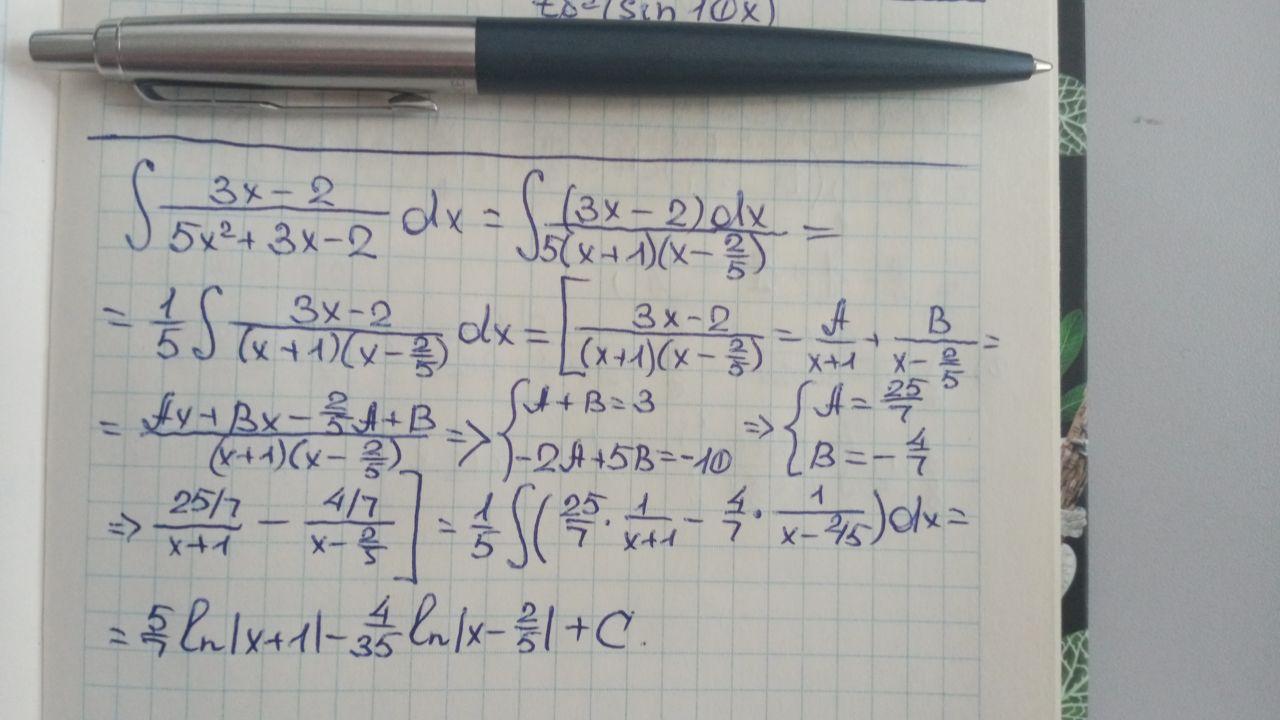 (sin 10x)
∫ (3x - 2)/(5x² + 3x - 2) dx = ∫ ((3x - 2)dx)/(5(x+1)(x - 2/5)) =
= 1/5 ∫ (3x - 2)/((x+1)(x - 2/5)) dx = [ (3x - 2)/((x+1)(x - 2/5)) = A/(x+1) + B/(x - 2/5) =
= (Ax + Bx - 2/5 A + B)/((x+1)(x - 2/5)) => { A + B = 3; -2A + 5B = -10 => { A = 25/7; B = -4/7
=> (25/7)/(x+1) - (4/7)/(x - 2/5) ] = 1/5 ∫ (25/7 · 1/(x+1) - 4/7 · 1/(x - 2/5)) dx =
= 5/7 ln|x+1| - 4/35 ln|x - 2/5| + C.